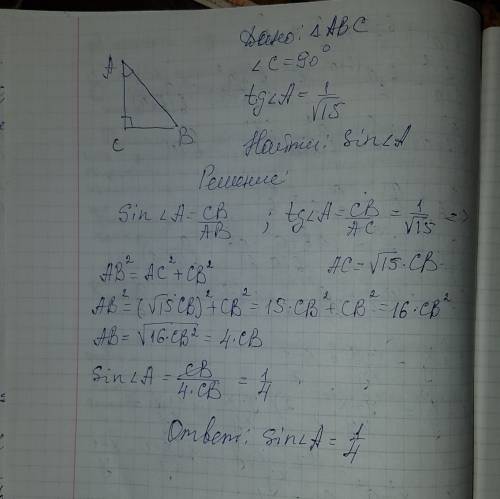 Дано: ΔABC
∠C=90°
tg∠A=1/√15
Найти: Sin∠A
A
C
B
Решение:
Sin∠A=CB/AB ; tg∠A=CB/AC=1/√15 =>
AC=√15·CB
AB²=AC²+CB²
AB²=(√15CB)²+CB²=15·CB²+CB²=16·CB²
AB=√16·CB²=4·CB
Sin∠A=CB/4·CB=1/4
Ответ: Sin∠A=1/4